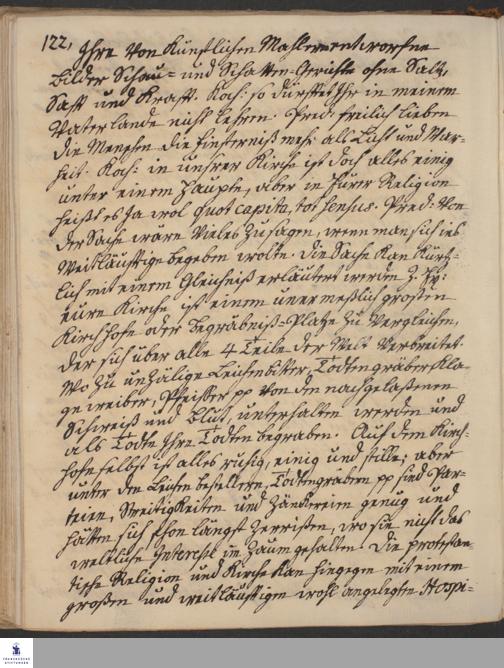 122, Ihre von Künstlichen Mahlern entworfene
Bilder Schau- und Schatten-Gerichte ohne Saltz,
Saft und Kraft. Koch: so dürftet Ihr in meinem
Vaterlande nicht lehren. Pred: freilich lieben
die Menschen die Finsterniß mehr als Licht und War-
heit. Koch: in unsrer Kirche ist doch alles einig
unter einem Haupte, aber in Eurer Religion
heißt es ja wol Quot capita, tot sensus. Pred: Von
der Sache wäre vieles zu sagen, wenn man sich ins
Weitläuftige begeben wolte. Die Sache kan Kürtz-
lich mit einem Gleichniß erläutert werden z. Ex:
eure Kirche ist einem unermeßlich großen
Kirchhofe oder Begräbniß-Platze zu vergleichen,
der sich über alle 4 Teile der Welt verbreitet.
Wozu unzälige Leichenbitter, Todtengräber Kla-
geweiber, Pfeiffer pp von den nachgelaßenen
Schweiß und Blut unterhalten werden und
als Todte Ihre Todten begraben. Auf dem Kirch-
hofe selbst ist alles ruhig, einig und stille; aber
unter den Leichenbestellern, Todtengräbern pp sind Par-
teien, Streitigkeiten und Zänkereien genug und
hätten sich schon längst zerrißen, wo sie nicht das
weltliche Interesse im Zaum gehalten. Die protestan-
tische Religion und Kirche kan hingegen mit einem
großen und weitläuftigen wohl angelegten Hospi-
FRANCKESCHE
STIFTUNGEN